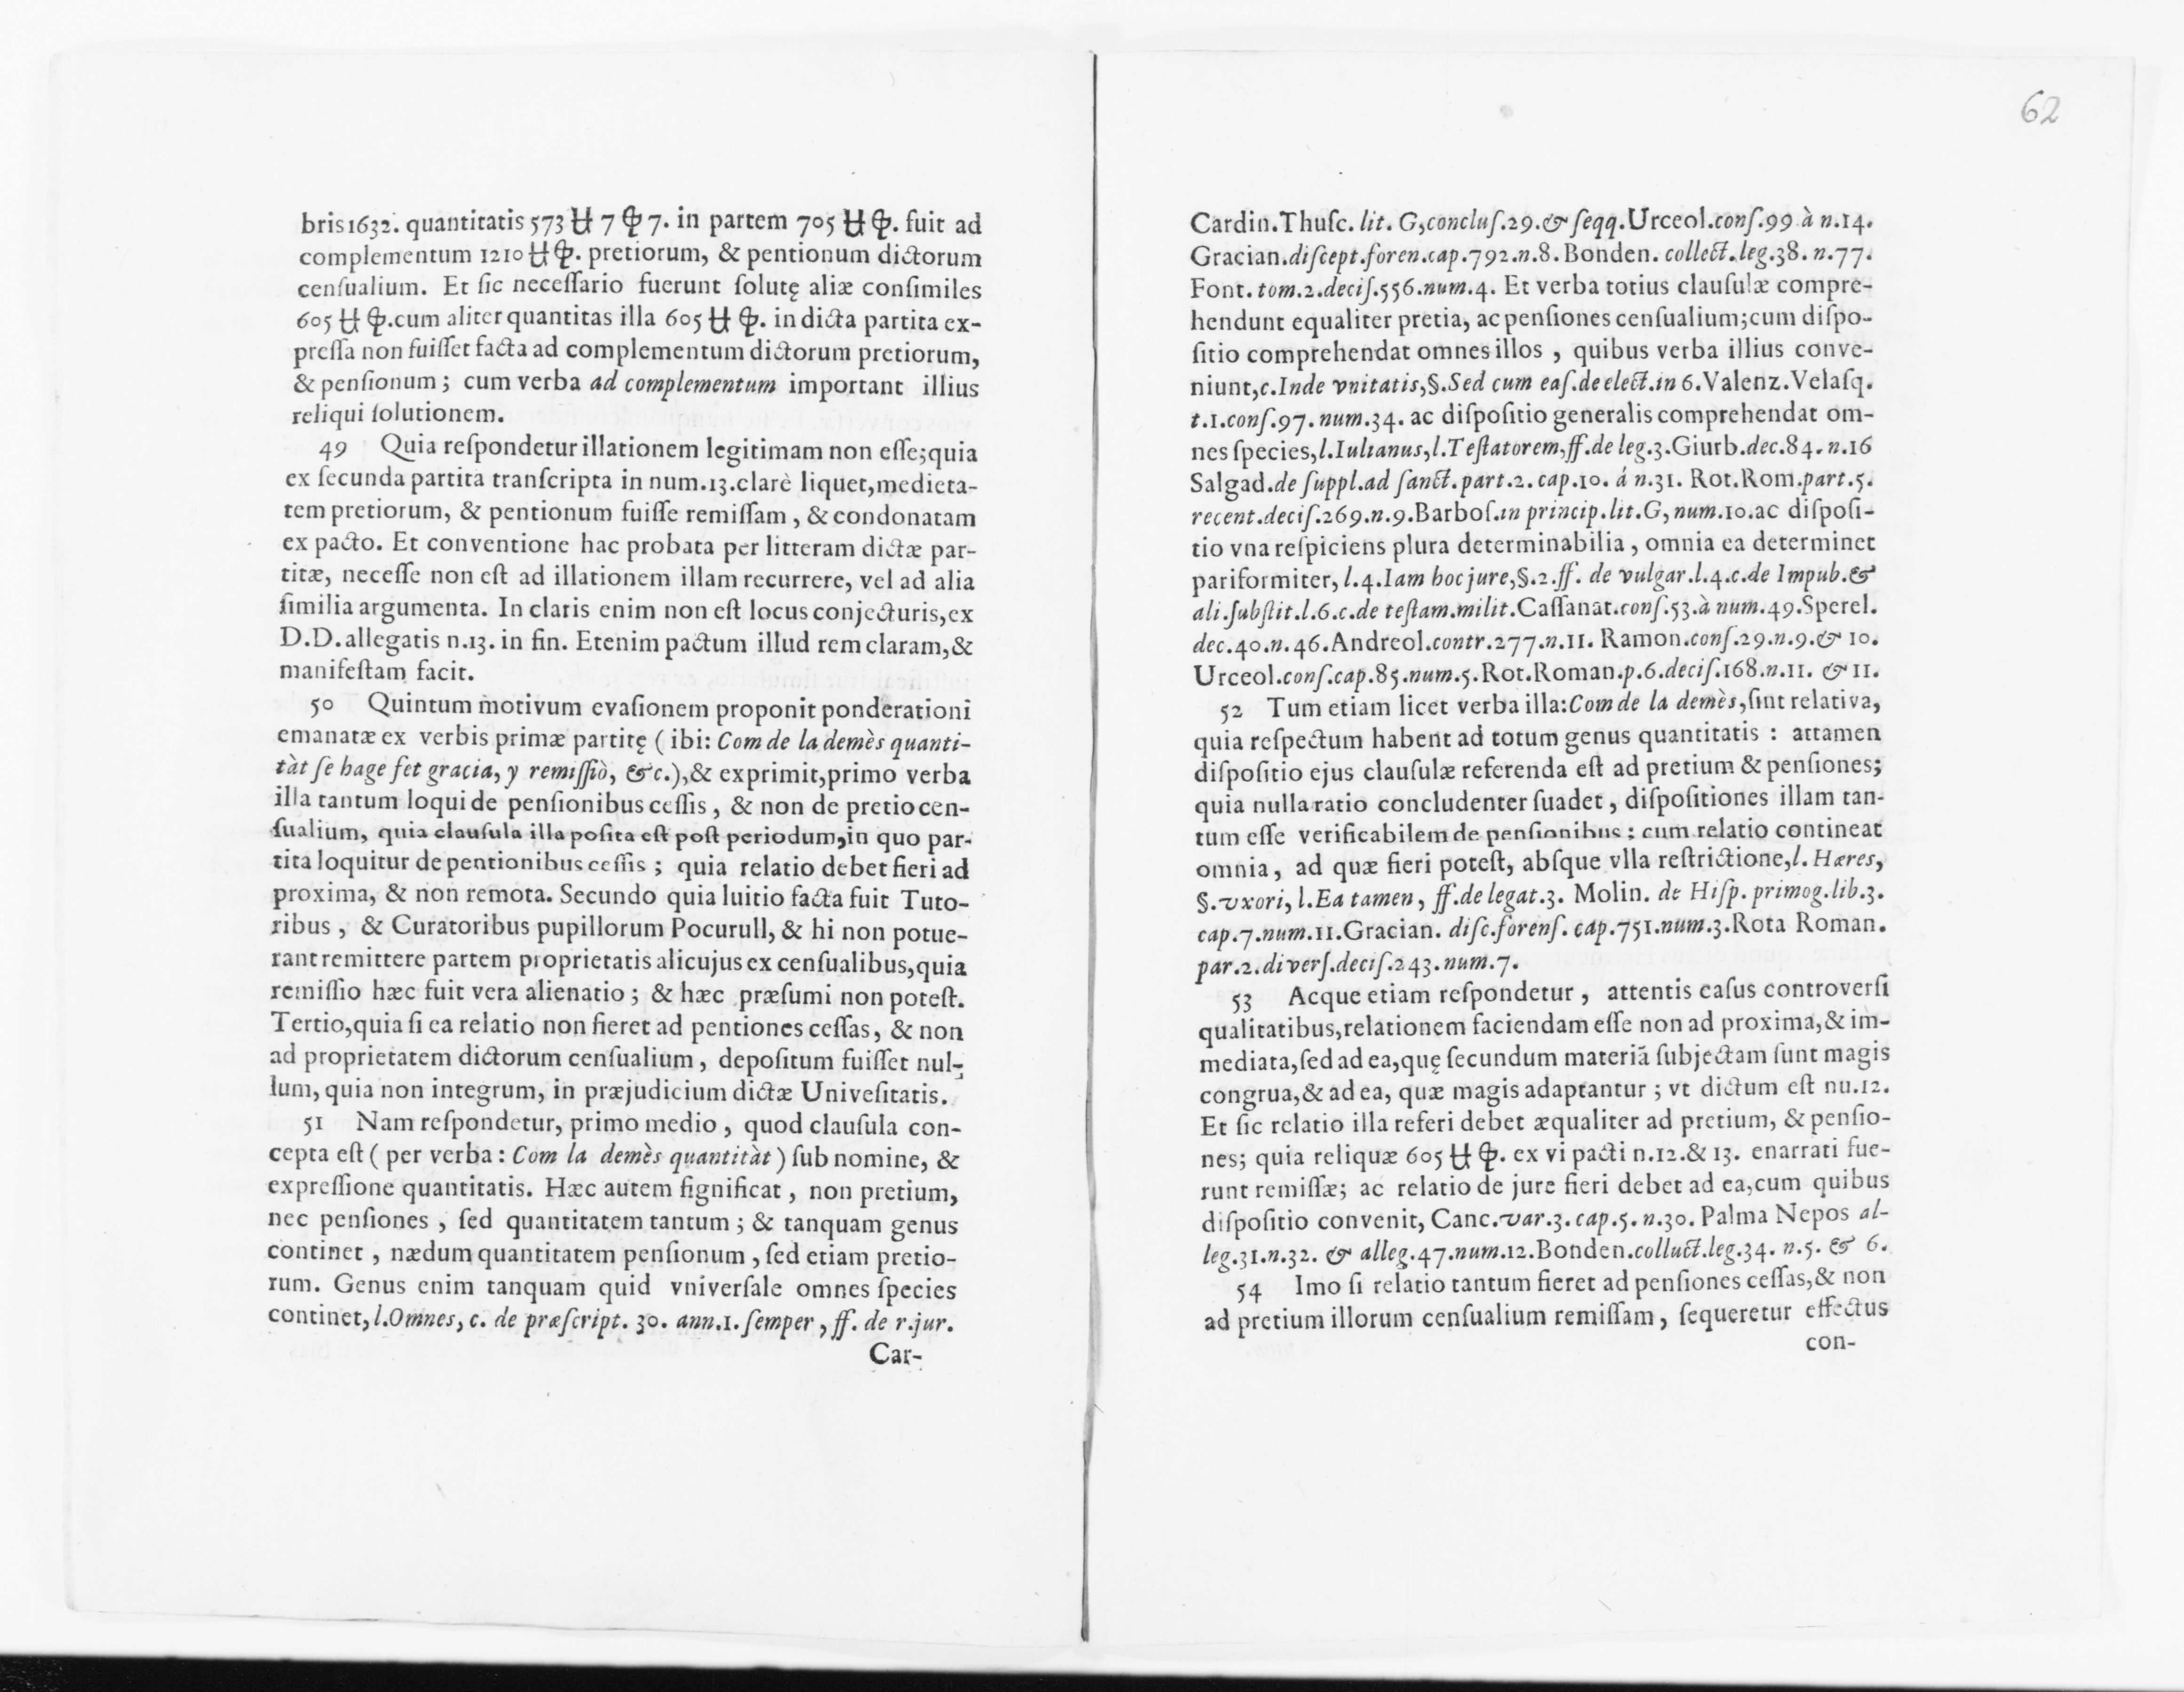 bris1632. quantitatis 573 ꟓ 7 ꝕ 7. in partem 705 ꟓ ꝕ. fuit ad
complementum 1210 ꟓ ꝕ. pretiorum, & pentionum dictorum
cenſualium. Et ſic neceſſario fuerunt ſolutę aliæ conſimiles
605 ꟓ ꝕ.cum aliter quantitas illa 605 ꟓ ꝕ. in dicta partita ex-
preſſa non fuiſſet facta ad complementum dictorum pretiorum,
& penſionum; cum verba ad complementum important illius
reliqui ſolutionem.
49 Quia reſpondetur illationem legitimam non eſſe;quia
ex ſecunda partita tranſcripta in num.13.clarè liquet,medieta-
tem pretiorum, & pentionum fuiſſe remiſſam, & condonatam
ex pacto. Et conventione hac probata per litteram dictæ par-
titæ, neceſſe non eſt ad illationem illam recurrere, vel ad alia
ſimilia argumenta. In claris enim non eſt locus conjecturis,ex
D.D.allegatis n.13. in fin. Etenim pactum illud rem claram,&
manifeſtam facit.
50 Quintum motivum evaſionem proponit ponderationi
emanatæ ex verbis primæ partitę ( ibi: Com de la demès quanti-
tàt ſe hage fet gracia, y remiſſiò, &c.),& exprimit,primo verba
illa tantum loqui de penſionibus ceſſis, & non de pretio cen-
ſualium, quia clauſula illa poſita eſt poſt periodum,in quo par-
tita loquitur de pentionibus ceſſis; quia relatio debet fieri ad
proxima, & non remota. Secundo quia luitio facta fuit Tuto-
ribus, & Curatoribus pupillorum Pocurull, & hi non potue-
rant remittere partem proprietatis alicujus ex cenſualibus,quia
remiſſio hæc fuit vera alienatio; & hæc præſumi non poteſt.
Tertio,quia ſi ea relatio non fieret ad pentiones ceſſas, & non
ad proprietatem dictorum cenſualium, depoſitum fuiſſet nul-
lum, quia non integrum, in præjudicium dictæ Univeſitatis.
51 Nam reſpondetur, primo medio, quod clauſula con-
cepta eſt ( per verba: Com la demès quantitàt ) ſub nomine, &
expreſſione quantitatis. Hæc autem ſignificat, non pretium,
nec penſiones, ſed quantitatem tantum; & tanquam genus
continet, nædum quantitatem penſionum, ſed etiam pretio-
rum. Genus enim tanquam quid vniverſale omnes ſpecies
continet, l.Omnes, c. de præſcript. 30. ann.1. ſemper, ff. de r.jur.
Car-
62
Cardin.Thuſc. lit. G,concluſ.29.& ſeqq.Urceol.conſ.99 à n.14.
Gracian.diſcept.foren.cap.792.n.8.Bonden. collect.leg.38.n.77.
Font.tom.2.deciſ.556.num.4. Et verba totius clauſulæ compre-
hendunt equaliter pretia, ac penſiones cenſualium;cum diſpo-
ſitio comprehendat omnes illos, quibus verba illius conve-
niunt,c.Inde vnitatis,§.Sed cum eaſ.de elect.in 6.Valenz.Velaſq.
t.1.conſ.97.num.34. ac diſpoſitio generalis comprehendat om-
nes ſpecies,l.Iulianus,l.Teſtatorem,ff.de leg.3.Giurb.dec.84.n.16
Salgad.de ſuppl.ad ſanct.part.2.cap.10. á n.31. Rot.Rom.part.5.
recent.deciſ.269.n.9.Barboſ.in princip.lit.G,num.10.ac diſpoſi-
tio vna reſpiciens plura determinabilia, omnia ea determinet
pariformiter, l.4.Iam hoc jure,§.2.ff. de vulgar.l.4.c.de Impub.&
ali.ſubſtit.l.6.c.de teſtam.milit.Caſſanat.conſ.53.à num.49.Sperel.
dec.40.n.46.Andreol.contr.277.n.11. Ramon.conſ.29.n.9.& 10.
Urceol.conſ.cap.85.num.5.Rot.Roman.p.6.deciſ.168.n.11. & 11.
52 Tum etiam licet verba illa:Com de la demès,ſint relativa,
quia reſpectum habent ad totum genus quantitatis: attamen
diſpoſitio ejus clauſulæ referenda eſt ad pretium & penſiones;
quia nulla ratio concludenter ſuadet, diſpoſitiones illam tan-
tum eſſe verificabilem de penſionibus; cum relatio contineat
omnia, ad quæ fieri poteſt, abſque vlla reſtrictione,l. Hæres,
§.vxori, l.Ea tamen, ff.de legat.3. Molin. de Hiſp. primog.lib.3.
cap.7.num.11.Gracian. diſc.forenſ. cap.751.num.3.Rota Roman.
par.2.diverſ.deciſ.243.num.7.
53 Acque etiam reſpondetur, attentis caſus controverſi
qualitatibus,relationem faciendam eſſe non ad proxima,& im-
mediata,ſed ad ea,quę ſecundum materiã ſubjectam ſunt magis
congrua,& ad ea, quæ magis adaptantur; vt dictum eſt nu.12.
Et ſic relatio illa referi debet æqualiter ad pretium, & penſio-
nes; quia reliquæ 605 ꟓ ꝕ. ex vi pacti n.12.& 13. enarrati fue-
runt remiſſæ; ac relatio de jure fieri debet ad ea,cum quibus
diſpoſitio convenit, Canc.var.3.cap.5.n.30. Palma Nepos al-
leg.31.n.32. & alleg.47.num.12.Bonden.colluct.leg.34. n.5. & 6.
54 Imo ſi relatio tantum fieret ad penſiones ceſſas,& non
ad pretium illorum cenſualium remiſſam, ſequeretur effectus
con-